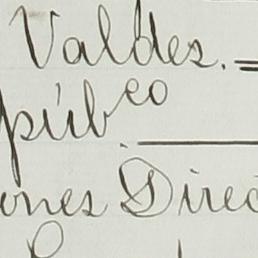 Valdes. =
púb.co —
ones Direc